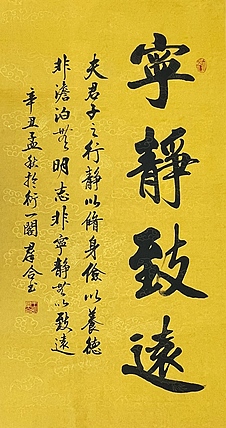 寧靜致遠
夫君子之行靜以脩身儉以養德
非澹泊無以明志非寧靜無以致遠
辛丑孟秋於衍一閣群合書